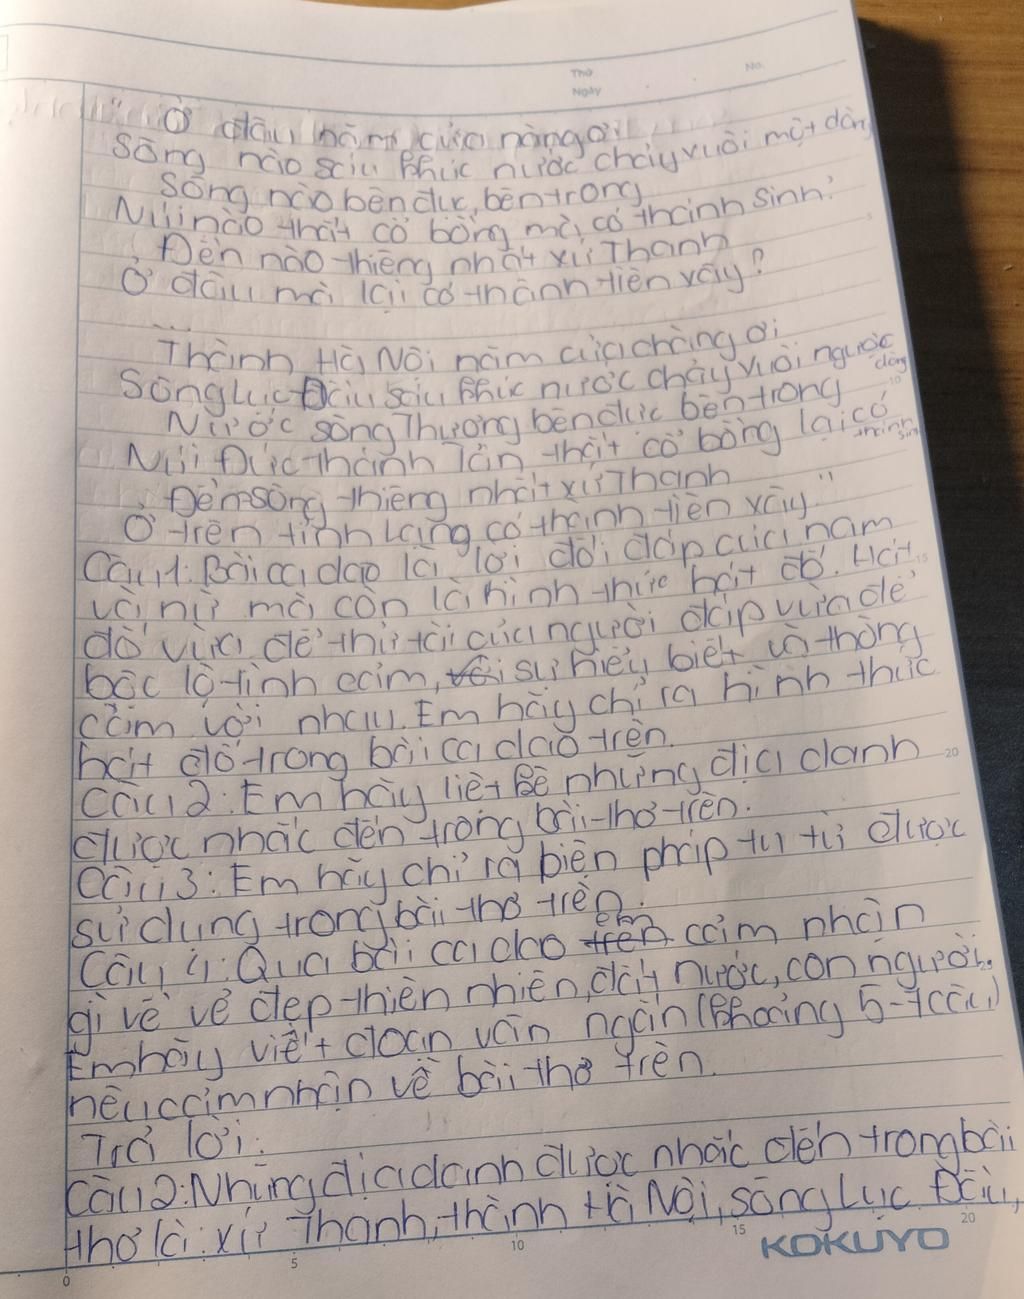 Thứ
No.
Ngày
" Ở đâu năm cửa nàng ơi
Sông nào sâu khúc nước chảy xuôi một dòng
Sông nào bên đục, bên trong
Núi nào thắt cổ bồng mà có thánh sinh?
Đền nào thiêng nhất xứ Thanh
Ở đâu mà lại có thành tiên xây?
...
Thành Hà Nội năm cửa chàng ơi
Sông Lục Đầu sáu khúc nước chảy xuôi ngược
dòng
Nước sông Thương bên đục bên trong
Núi Đức thánh Tản thắt cổ bồng lại có
thánh
sinh
Đền sòng thiêng nhất xứ Thanh
Ở trên tỉnh Lạng có thành tiên xây "
Câu 1: Bài ca dao là lời đối đáp của nam
và nữ mà còn là hình thức hát đố. Hát
đố vừa để thử tài của người đáp vừa để
bộc lộ tình cảm, sự hiểu biết và thông
cảm với nhau. Em hãy chỉ ra hình thức
hát đố trong bài ca dao trên.
Câu 2: Em hãy liệt kê những địa danh
được nhắc đến trong bài thơ trên.
Câu 3: Em hãy chỉ ra biện pháp tu từ được
sử dụng trong bài thơ trên.
Câu 4: Qua bài ca dao trên em cảm nhận
gì về vẻ đẹp thiên nhiên, đất nước, con người.
Em hãy viết đoạn văn ngắn (khoảng 5-7 câu)
nêu cảm nhận về bài thơ trên.
Trả lời:
Câu 2: Những địa danh được nhắc đến trong bài
thơ là: xứ Thanh, thành Hà Nội, sông Lục Đầu,
0 5 10 15 20
KOKUYO